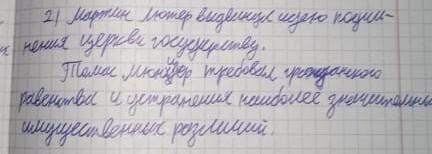 2) Мартин Лютер выдвинул идею подчи-
нения церкви государству.
Томас Мюнцер требовал гражданского
равенства и устранения наиболее значительны
имущественных различий.